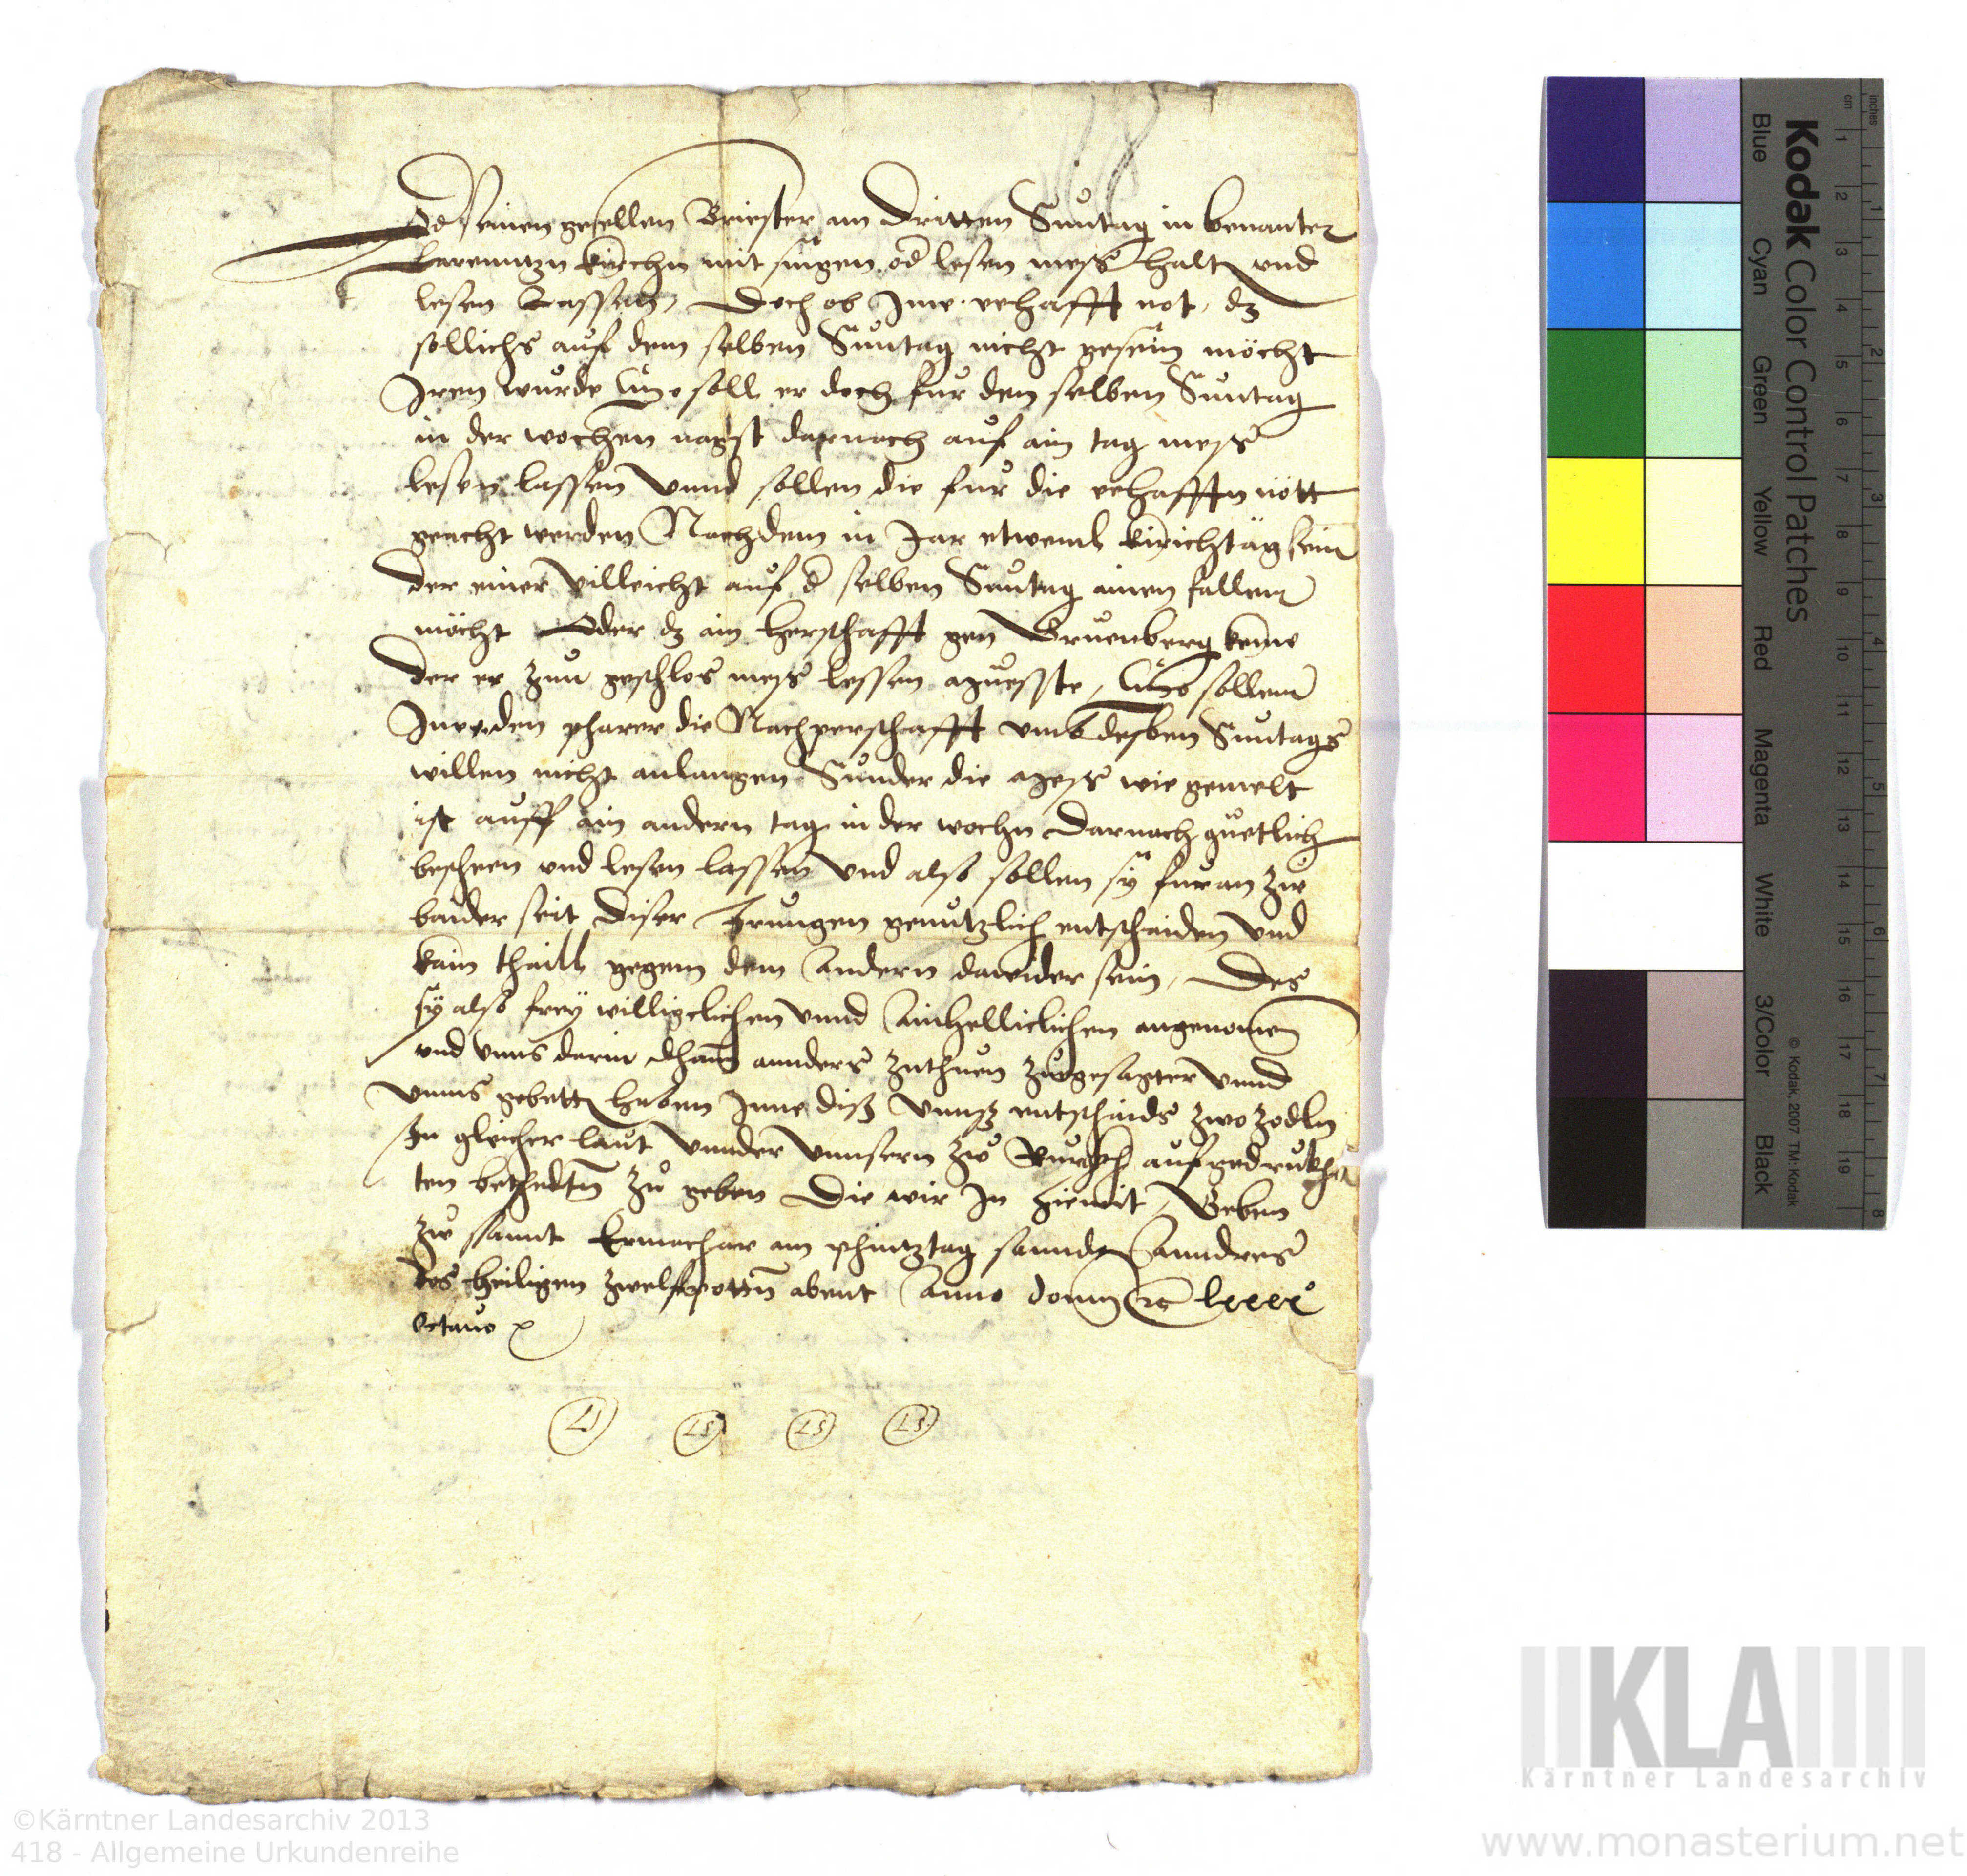 Od seinen gesellen Briester am dritten Suntag in benanter
kirchn mit singen od lesen mess halt und
lesen lassen, Doch ob Ime eehafft not, dz
sollichs auf dem selben Suntag nicht gesein möcht
Iren wurde soll er doch fur den selben Suntag
in der wochen nagst darnach auf ain tag mess
lesen lassen Vnnd sollen die fur die eehafftn nött
geacht werden Nachdem in Jar etweml kirichtäg sein
der einer villeicht auf d selben Suntag ainen fallen
möcht Oder dz ain herschafft gen Gruenberg keme
der er zum geschlos mess lessen muesste, sollen
den pharer die Nachperschafft vmb desben Suntags
willen nicht anlangen Sunder die mess wie gemelt
ist auff ain andern tag in der wochn Darnach guetlich
bescheen vnd lesen lassen Vnd also sollen sy furan zw
baider seit diser Irrungen genntzlich entschaiden Vnd
kain thaill gegem dem Andern dawider sein, Des
sy also frey williglichen vnnd Ainhelliclichen angenomen
vnd vnns darin khain annders zuthuen zuegesagter vnnd
vnns gebett haben Inne diss Vnnss entschaids zwo zedln
In gleicher laut Vnnder Vnnsern zw Rugkh aufgedrukhe
ten bethedtn zu geben Die wir In hiemit, Geben
zw sannt Ermachar am phintztag sannd Anndres
des heiligen zwelfpottn abent Anno domj rc lxxxx°
Octauo
LS LS LS LS
Kodak Color Control Patches
Blue Cyan Green Yellow Red Magenta White 3/Color Black
© Kodak, 2007 TM: Kodak
inches 1 2 3 4 5 6 7 8
cm 1 2 3 4 5 6 7 8 9 10 11 12 13 14 15 16 17 18 19
KLA
Kärntner Landesarchiv
©Kärntner Landesarchiv 2013
418 - Allgemeine Urkundenreihe
www.monasterium.net